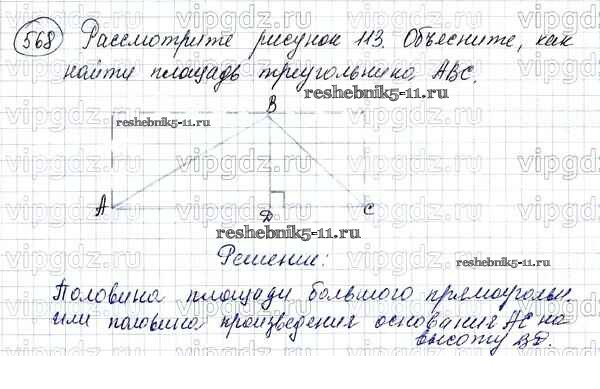 568 Рассмотрите рисунок 113. Объясните, как
найти площадь треугольника ABC.
reshebnik5-11.ru
B
reshebnik5-11.ru
A
D
C
reshebnik5-11.ru
Решение:
reshebnik5-11.ru
Половина площади большого прямоугольн.
или половина произведения основания AC на
высоту BD.
vipgdz.ru